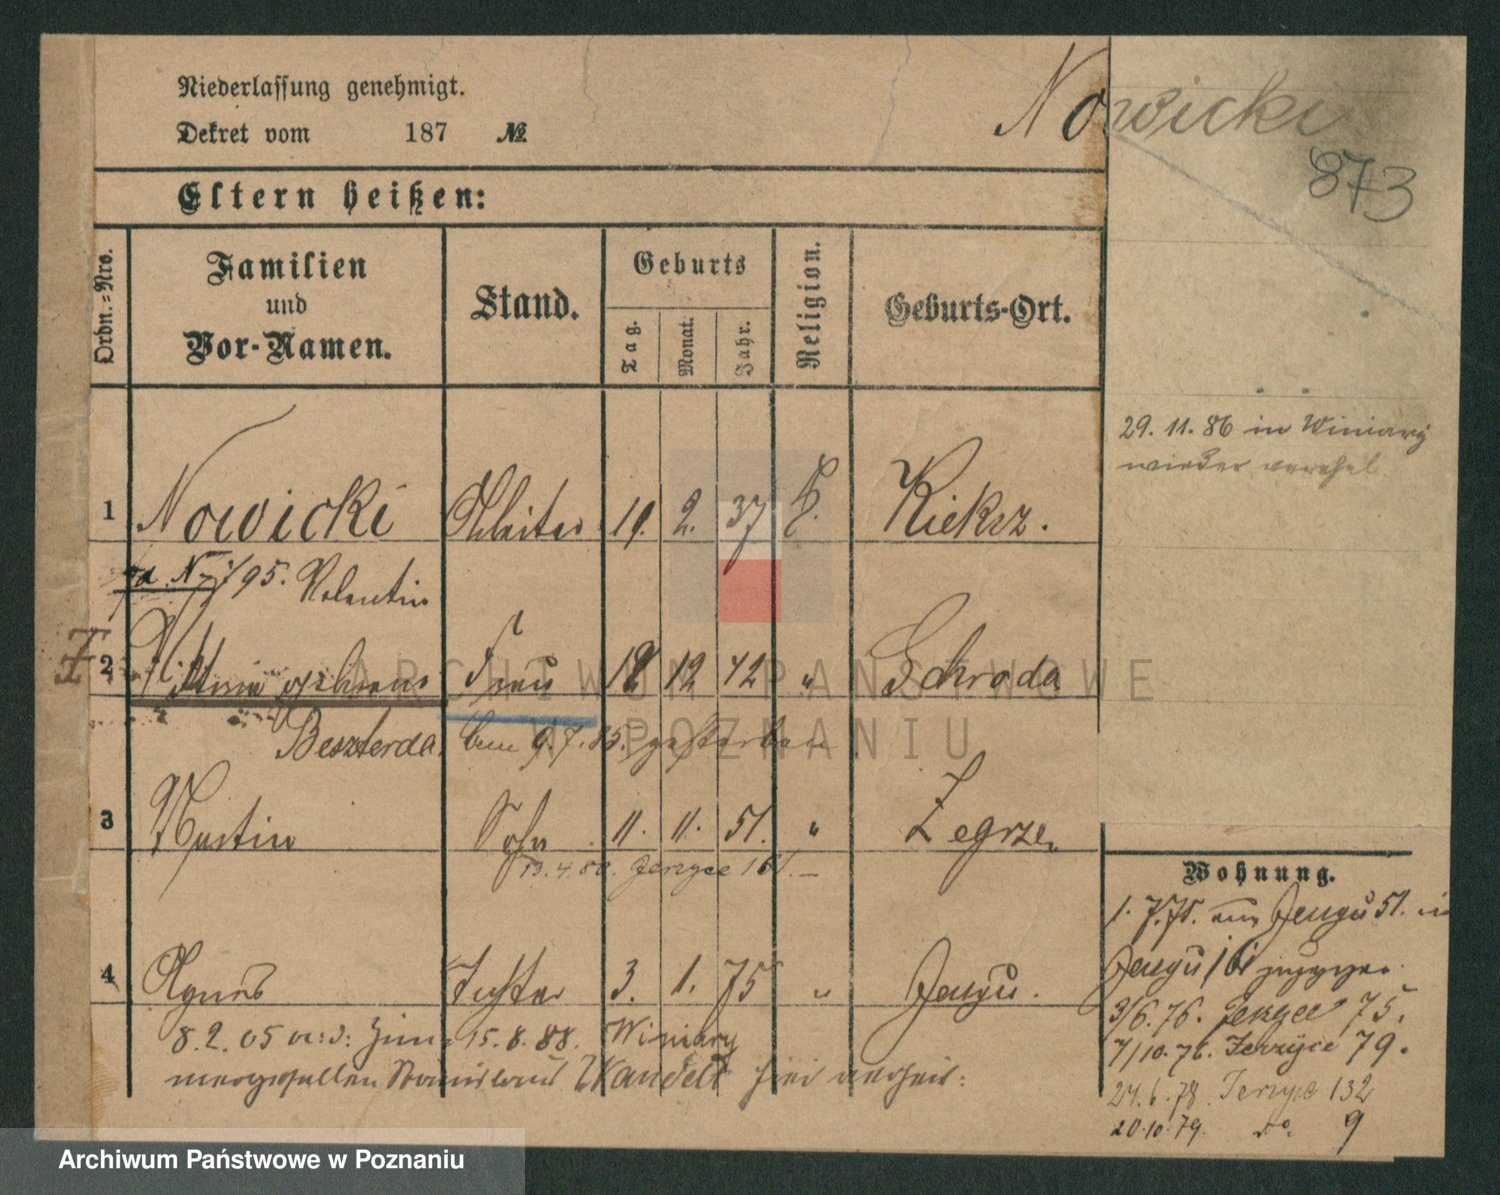 Niederlassung genehmigt.
Dekret vom 187 №
Nowicki
873
Eltern heißen:
Ordn.=Nro.
Familien
und
Vor-Namen.
Stand.
Geburts
Tag.
Monat.
Jahr.
Religion.
Geburts-Ort.
29. 11. 86 in Winiary
wieder verehel
1 Nowicki Arbeiter 19. 2. 37 Kiekrz.
95. Valentin
2 Frau 12 42 " Schroda
Beszterda. am 9.7.85. gestorben
3 Martin Sohn 11. 11. 51. " Zegrze
13.4.80. Jerzyce
4 Agnes Tochter 3. 1. 75 "
8.2.05 15.8.88. Winiary
Stanislaus Wandelt hier verheir:
Wohnung.
1. 7.75. 51. in
3/6.76. Jerzyce 75.
7/10.76. Jerzyce 79.
24.6.78. Jerzyce 132
20.10.79. do. 9
ARCHIWUM PAŃSTWOWE
W POZNANIU
Archiwum Państwowe w Poznaniu